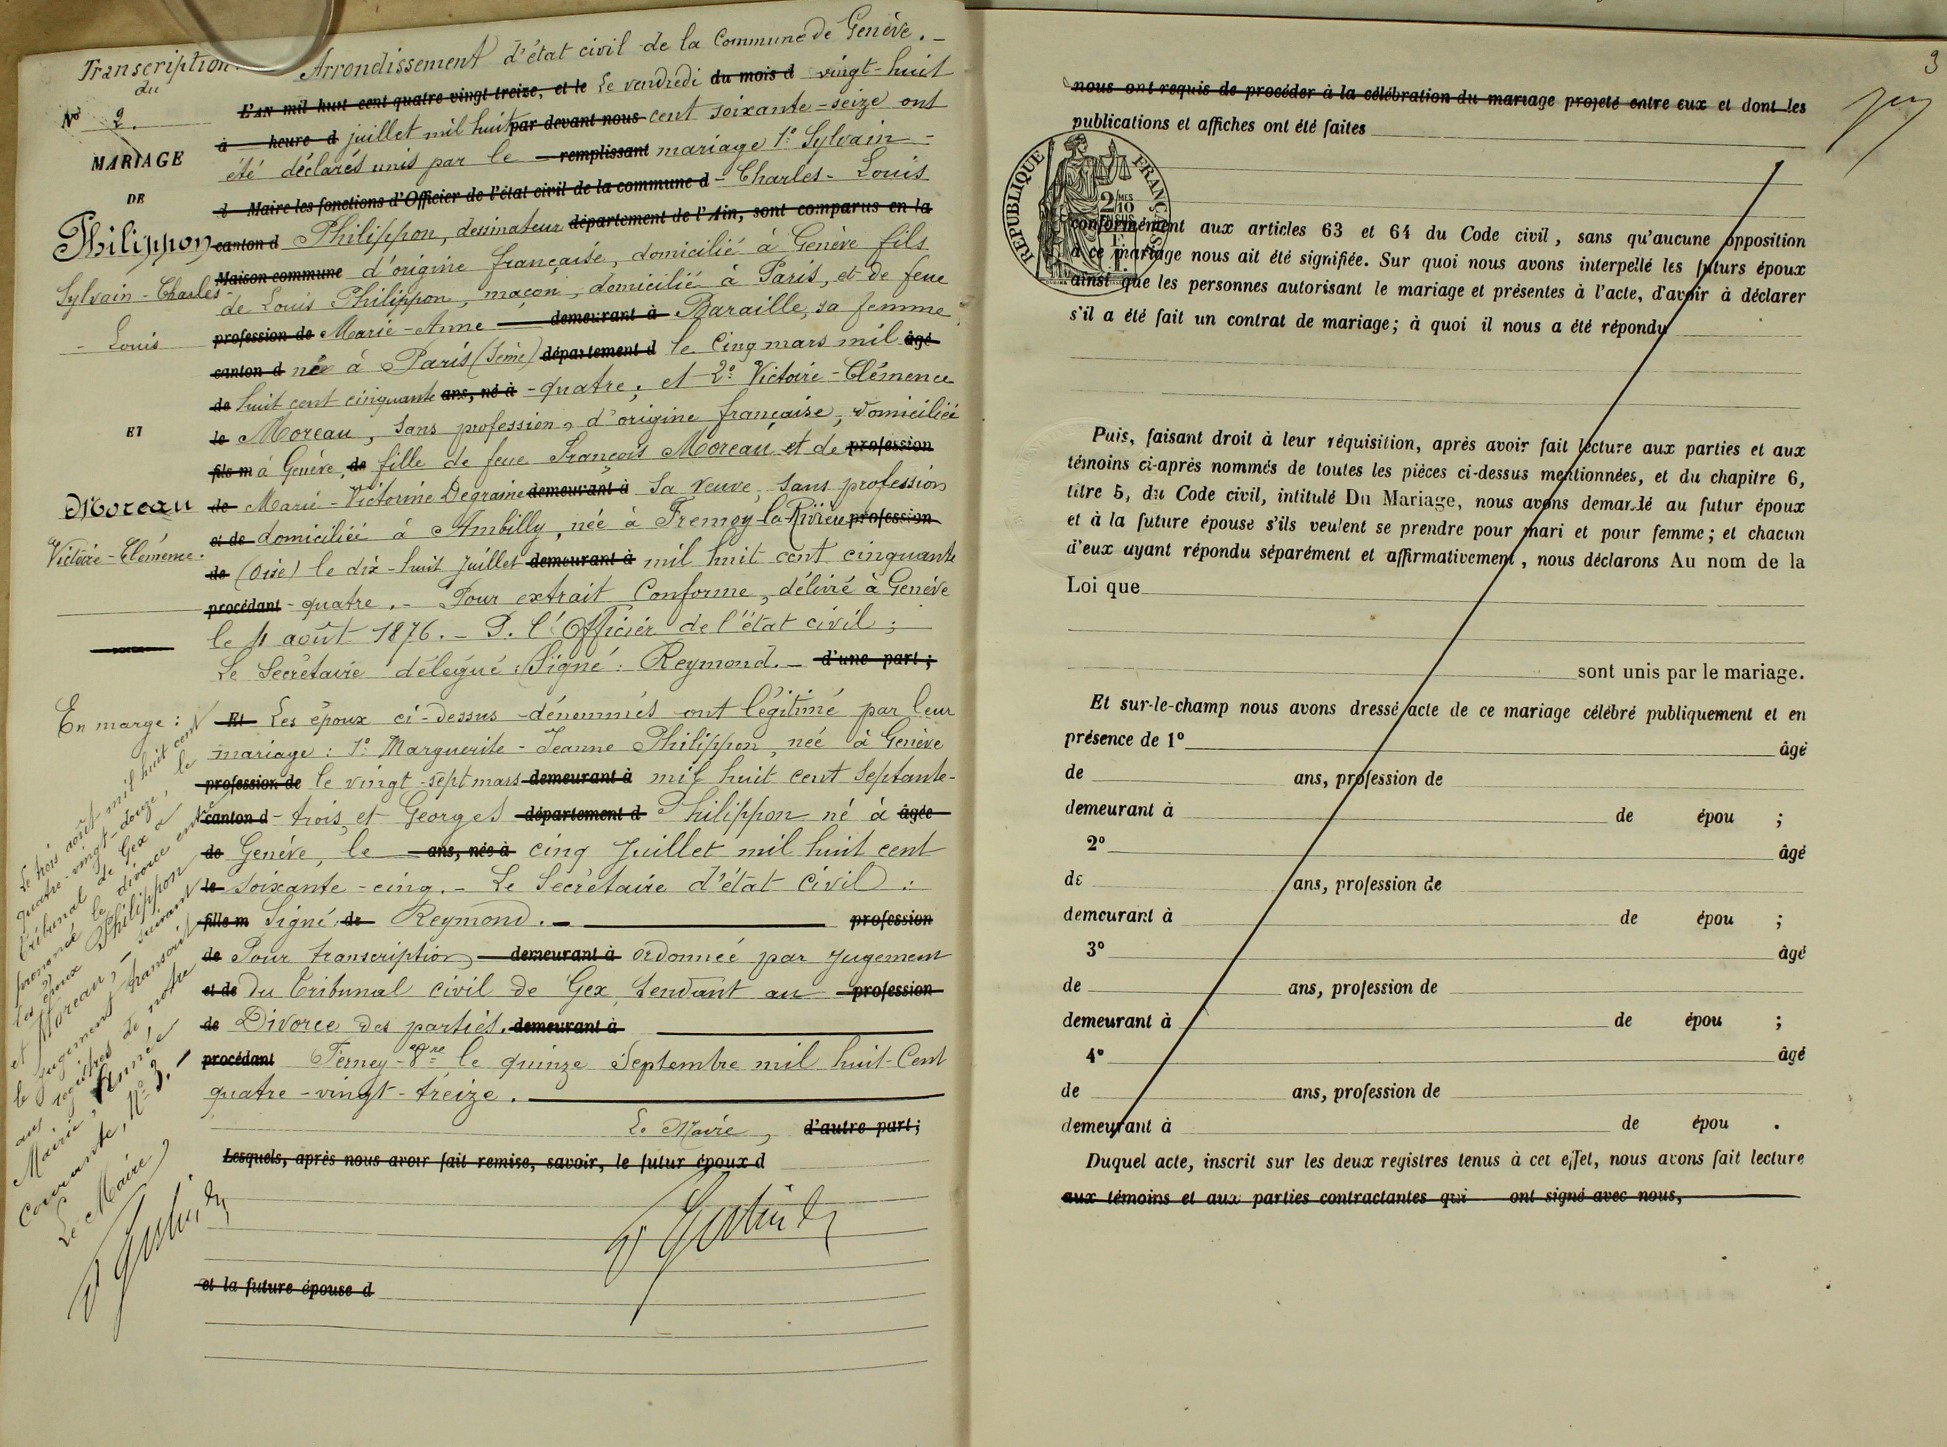 Transcription
du
Nº 2.
MARIAGE
DE
Philippon
Sylvain-Charles-
- Louis
ET
Moreau
Victoire-Clémence.
Arrondissement d'état civil de la Commune de Genève. _
L'AN mil huit cent quatre vingt treize, et le Le vendredi du mois d vingt-huit
à heure d juillet mil huit par devant nous cent soixante-seize ont
été déclarés unis par le remplissant mariage 1º Sylvain-
d Maire les fonctions d'Officier de l'état civil de la commune d - Charles-Louis
canton d Philippon, dessinateur département de l'Ain, sont comparus en la
Maison commune d'origine française, domicilié à Genève fils
de Louis Philippon, maçon, domicilié à Paris, et de feue
profession de Marie-Anne demeurant à Baraille, sa femme,
canton d né à Paris (Seine) département d le cinq mars mil âgé
de huit cent cinquante ans, né à - quatre; et 2º Victoire-Clémence
le Moreau, sans profession, d'origine française, domiciliée
fils m à Genève, de fille de feue François Moreau et de profession
de Marie-Victorine Degraine demeurant à sa veuve, sans profession
et de domiciliée à Ambilly, née à Fremoy-la-Rivière profession
de (Oise) le dix-huit juillet demeurant à mil huit cent cinquante
procédant - quatre. - Pour extrait conforme, délivré à Genève
le 4 août 1876. - P. l'Officier de l'état civil;
Le Secrétaire délégué: Signé: Reymond. - d'une part;
Et Les époux ci-dessus dénommés ont légitimé par leur
mariage: 1º Marguerite-Jeanne Philippon, née à Genève
profession de le vingt-sept mars demeurant à mil huit cent septante-
canton d - trois, et Georges département d Philippon né à âgée
de Genève, le ans, née à cinq Juillet mil huit cent
le soixante-cinq. - Le Secrétaire d'état civil:
fille m Signé de Reymond. - profession
de Pour transcription demeurant à ordonnée par jugement
et de du Tribunal civil de Gex, tendant au profession
de Divorce des parties. demeurant à
procédant Ferney-Vre le quinze Septembre mil huit-Cent
quatre-vingt-treize.
Le Maire, d'autre part;
Lesquels, après nous avoir fait remise, savoir, le futur époux d
et la future épouse d
En marge:
Le trois août mil huit cent
quatre-vingt-douze, le
tribunal de Gex a
prononcé le divorce entre
les époux Philippon
et Moreau, suivant
le jugement transcrit
aux registres de notre
Mairie, Année
courante, Nº 3.
Le Maire
3
nous ont requis de procéder à la célébration du mariage projeté entre eux et dont les
publications et affiches ont été faites
RÉPUBLIQUE FRANÇAISE
2/10
MES
EN SUS
conformément aux articles 63 et 64 du Code civil, sans qu'aucune opposition
à ce mariage nous ait été signifiée. Sur quoi nous avons interpellé les futurs époux
ainsi que les personnes autorisant le mariage et présentes à l'acte, d'avoir à déclarer
s'il a été fait un contrat de mariage; à quoi il nous a été répondu
Puis, faisant droit à leur réquisition, après avoir fait lecture aux parties et aux
témoins ci-après nommés de toutes les pièces ci-dessus mentionnées, et du chapitre 6,
titre 5, du Code civil, intitulé Du Mariage, nous avons demandé au futur époux
et à la future épouse s'ils veulent se prendre pour mari et pour femme; et chacun
d'eux ayant répondu séparément et affirmativement, nous déclarons Au nom de la
Loi que
sont unis par le mariage.
Et sur-le-champ nous avons dressé acte de ce mariage célébré publiquement et en
présence de 1º âgé
de ans, profession de
demeurant à de épou ;
2º âgé
de ans, profession de
demeurant à de épou ;
3º âgé
de ans, profession de
demeurant à de épou ;
4º âgé
de ans, profession de
demeurant à de épou .
Duquel acte, inscrit sur les deux registres tenus à cet effet, nous avons fait lecture
aux témoins et aux parties contractantes qui ont signé avec nous,